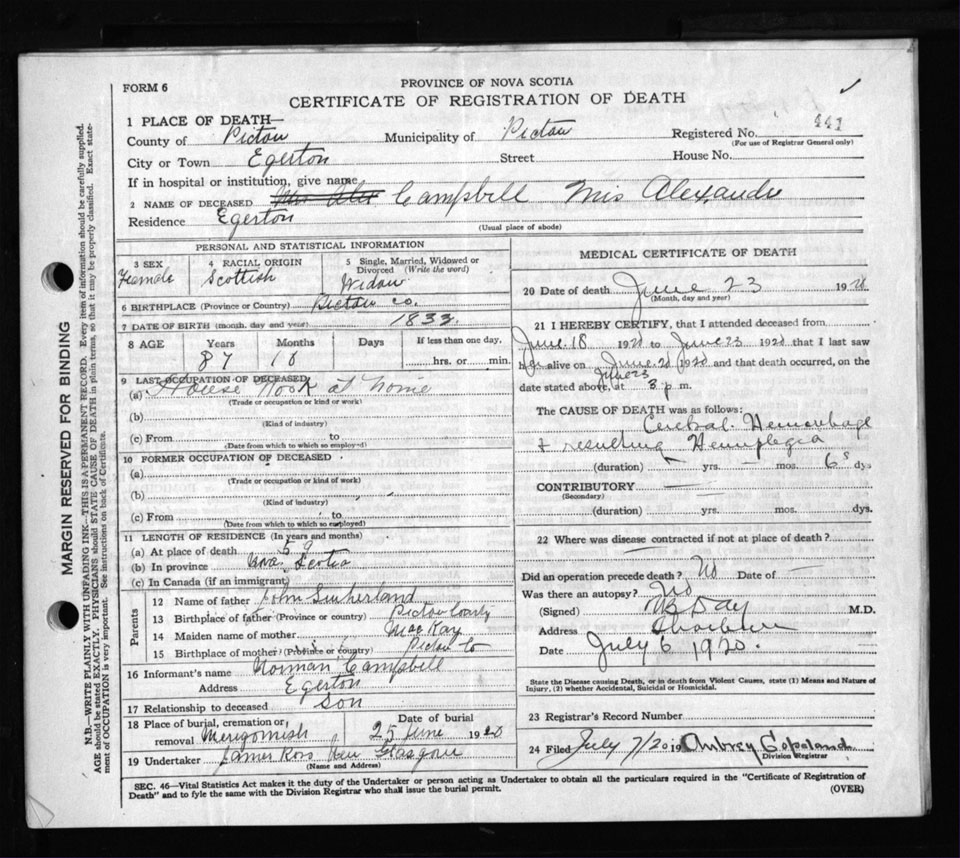 FORM 6
PROVINCE OF NOVA SCOTIA
CERTIFICATE OF REGISTRATION OF DEATH
1 PLACE OF DEATH—
County of Pictou Municipality of Pictou Registered No. 441
(For use of Registrar General only)
City or Town Egerton Street House No.
If in hospital or institution, give name
2 NAME OF DECEASED Mrs Alex Campbell Mrs Alexander
Residence Egerton
(Usual place of abode)
PERSONAL AND STATISTICAL INFORMATION
3 SEX Female
4 RACIAL ORIGIN Scottish
5 Single, Married, Widowed or Divorced (Write the word) Widow
6 BIRTHPLACE (Province or Country) Pictou Co.
7 DATE OF BIRTH (month, day and year) 1832
8 AGE Years Months Days If less than one day,
87 10 hrs. or min.
9 LAST OCCUPATION OF DECEASED
(a) House Work at home
(Trade or occupation or kind of work)
(b)
(Kind of industry)
(c) From to
(Date from which to which so employed)
10 FORMER OCCUPATION OF DECEASED
(a)
(Trade or occupation or kind of work)
(b)
(Kind of industry)
(c) From to
(Date from which to which so employed)
11 LENGTH OF RESIDENCE (In years and months)
(a) At place of death 59
(b) In province Nova Scotia
(c) In Canada (if an immigrant)
Parents
12 Name of father John Sutherland
13 Birthplace of father (Province or country) Pictou County
14 Maiden name of mother MacKay
15 Birthplace of mother (Province or country) Pictou Co
16 Informant's name Norman Campbell
Address Egerton
17 Relationship to deceased Son
18 Place of burial, cremation or removal Merigomish Date of burial 25 June 1920
19 Undertaker James Ross New Glasgow
(Name and Address)
MEDICAL CERTIFICATE OF DEATH
20 Date of death June 23 1920
(Month, day and year)
21 I HEREBY CERTIFY, that I attended deceased from
June 18 1920 to June 23 1920 that I last saw
her alive on June 20 1920 and that death occurred, on the
June 23
date stated above, at 3 p.m.
The CAUSE OF DEATH was as follows:
Cerebral Hemorrhage
+ resulting Hemiplegia
(duration) yrs. — mos. 6 dys
CONTRIBUTORY
(Secondary)
(duration) yrs. mos. dys.
22 Where was disease contracted if not at place of death?
Did an operation precede death? No Date of —
Was there an autopsy? No
(Signed) Day M.D.
Address
Date July 6 1920.
State the Disease causing Death, or in death from Violent Causes, state (1) Means and Nature of
Injury, (2) whether Accidental, Suicidal or Homicidal.
23 Registrar's Record Number
24 Filed July 7/20 19 Aubrey Copeland
Division Registrar
SEC. 46—Vital Statistics Act makes it the duty of the Undertaker or person acting as Undertaker to obtain all the particulars required in the "Certificate of Registration of
Death" and to fyle the same with the Division Registrar who shall issue the burial permit.
(OVER)
MARGIN RESERVED FOR BINDING
N.B.—WRITE PLAINLY WITH UNFADING INK—THIS IS A PERMANENT RECORD. Every item of information should be carefully supplied.
AGE should be stated EXACTLY. PHYSICIANS should STATE CAUSE OF DEATH in plain terms, so that it may be properly classified. Exact state-
ment of OCCUPATION is very important. See instructions on back of Certificate.